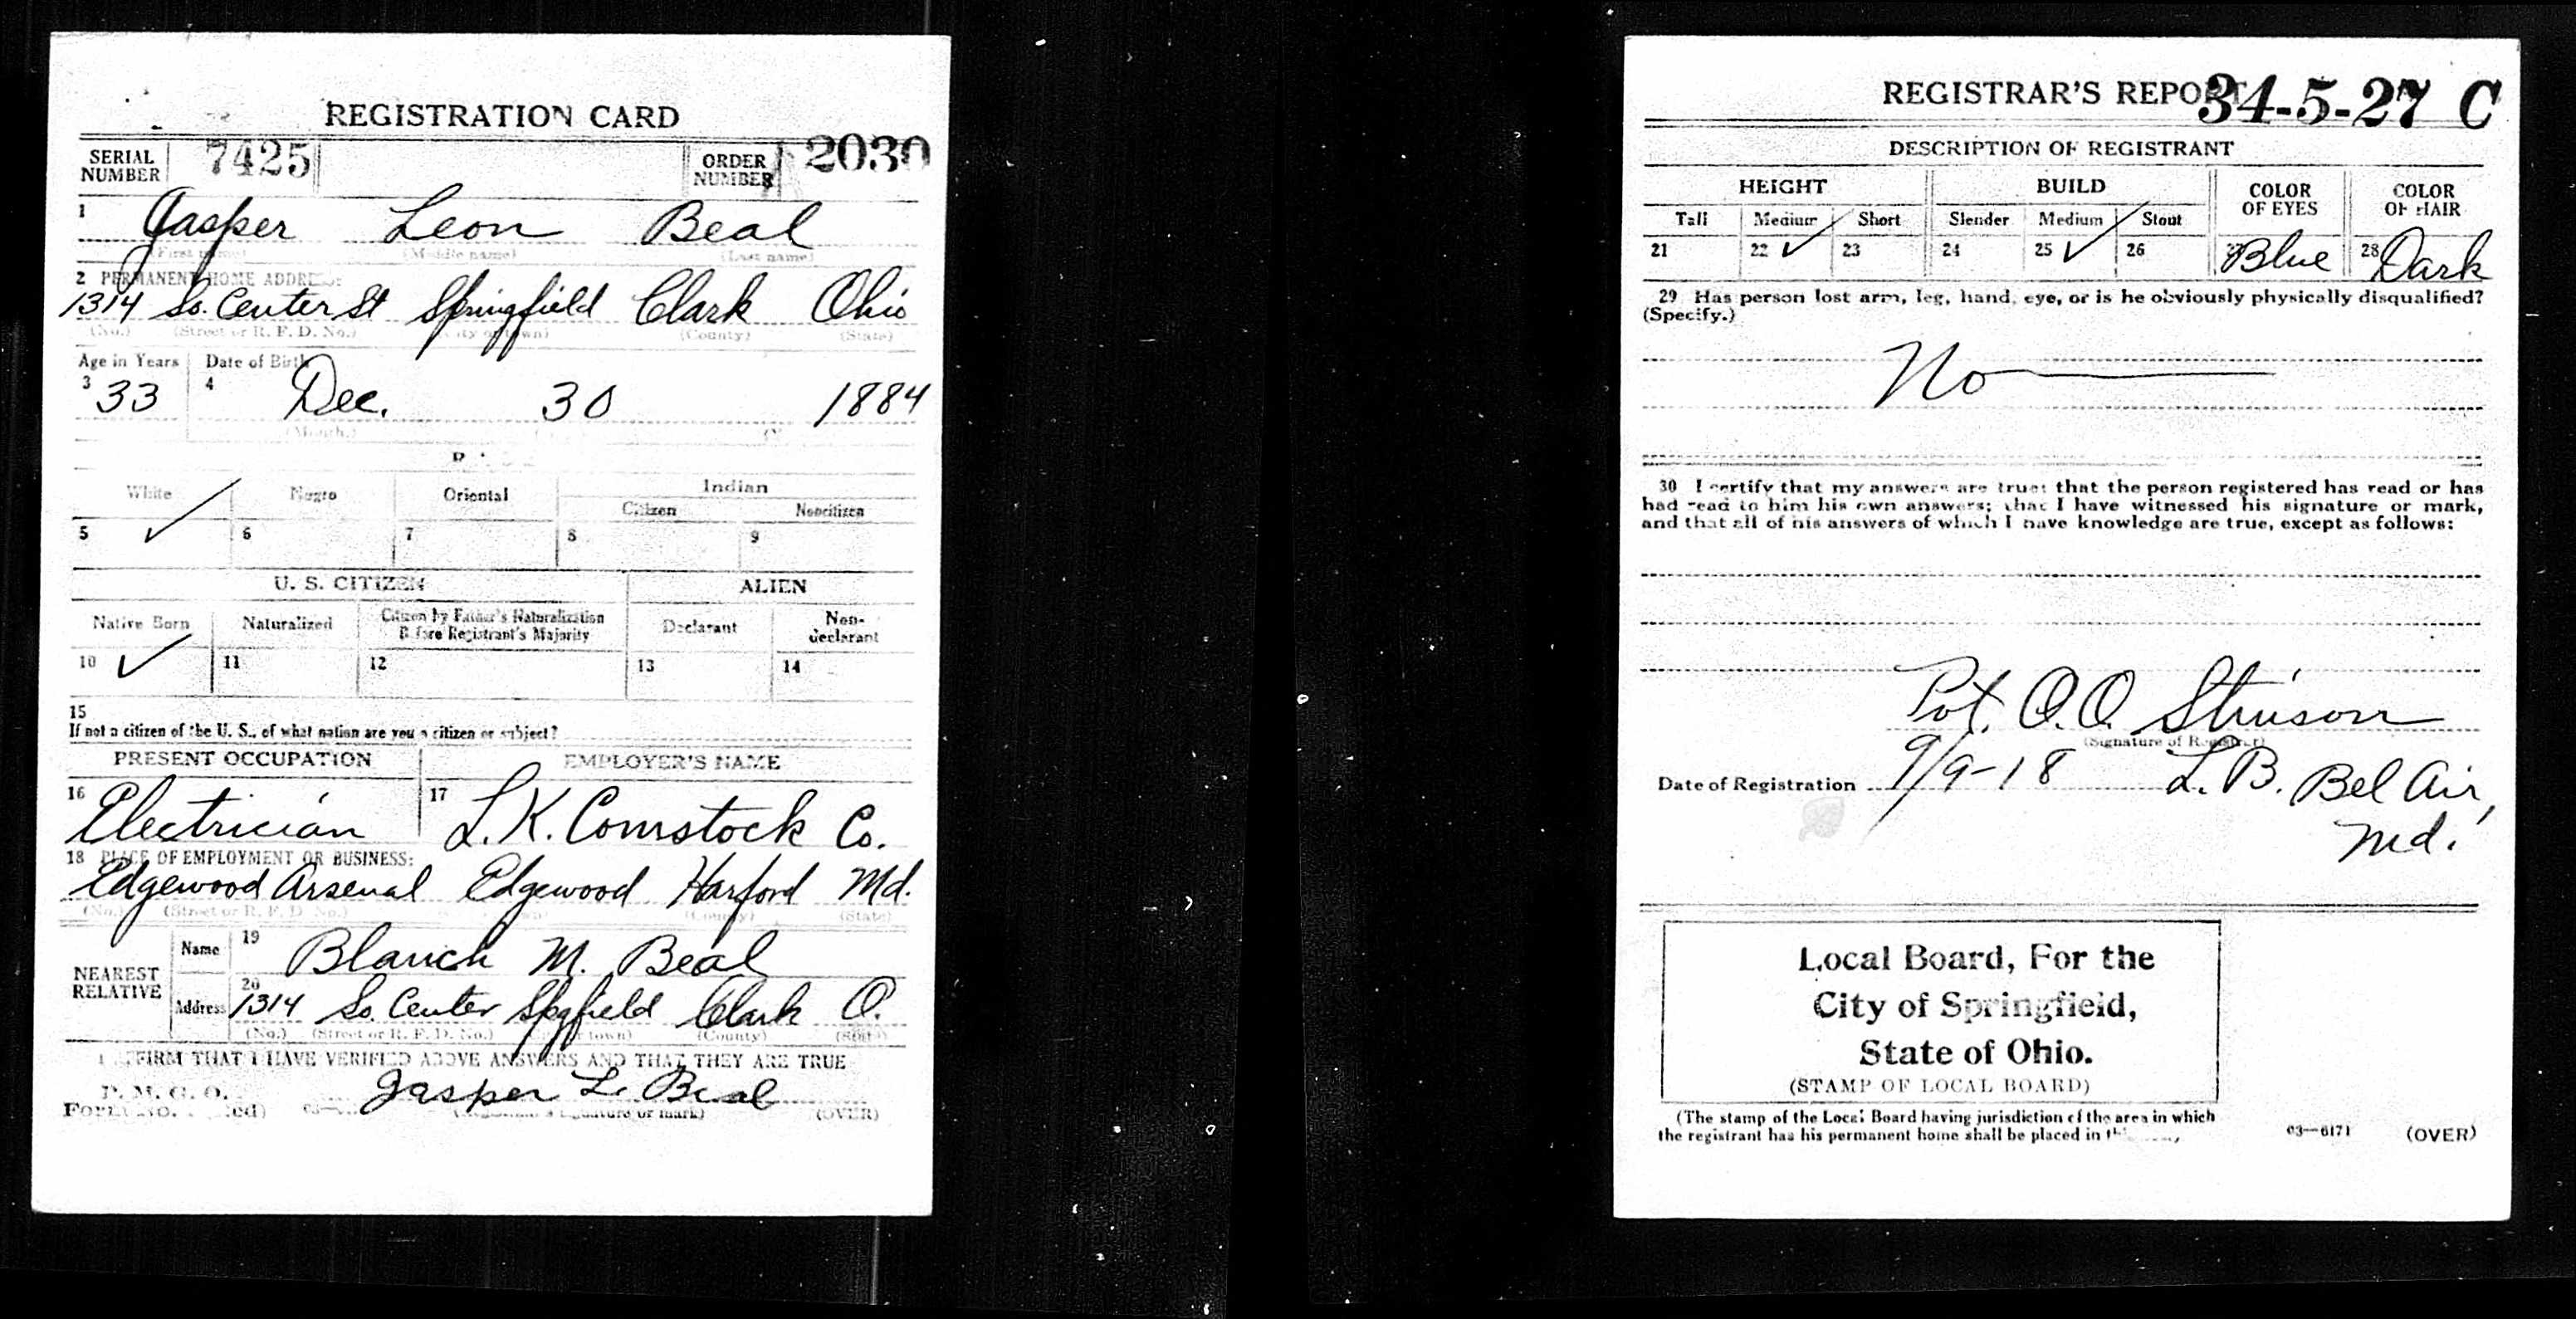 REGISTRATION CARD
SERIAL NUMBER 7425 ORDER NUMBER 2030
1 Jasper Leon Beal
(First name) (Middle name) (Last name)
2 PERMANENT HOME ADDRESS:
1314 So. Center St Springfield Clark Ohio
(No.) (Street or R. F. D. No.) (City or town) (County) (State)
Age in Years Date of Birth
3 33 4 Dec. 30 1884
(Month.)
White Negro Oriental Indian
Citizen Noncitizen
5 ✓ 6 7 8 9
U. S. CITIZEN ALIEN
Native Born Naturalized Citizen by Father's Naturalization Before Registrant's Majority Declarant Non-declarant
10 ✓ 11 12 13 14
15
If not a citizen of the U. S., of what nation are you a citizen or subject?
PRESENT OCCUPATION EMPLOYER'S NAME
16 Electrician 17 L. K. Comstock Co.
18 PLACE OF EMPLOYMENT OR BUSINESS:
Edgewood Arsenal Edgewood Harford Md.
(No.) (Street or R. F. D. No.) (County) (State)
NEAREST RELATIVE
Name 19 Blanch M. Beal
Address 20 1314 So. Center Spgfield Clark O.
(No.) (Street or R. F. D. No.) town) (County) (State)
AFFIRM THAT I HAVE VERIFIED ABOVE ANSWERS AND THAT THEY ARE TRUE
P. M. G. O.
Form No. Red) 03- Jasper L. Beal
signature or mark) (OVER)
REGISTRAR'S REPORT 34-5-27 C
DESCRIPTION OF REGISTRANT
HEIGHT BUILD COLOR OF EYES COLOR OF HAIR
Tall Medium Short Slender Medium Stout
21 22 ✓ 23 24 25 ✓ 26 27 Blue 28 Dark
29 Has person lost arm, leg, hand, eye, or is he obviously physically disqualified?
(Specify.)
No
30 I certify that my answers are true; that the person registered has read or has
had read to him his own answers; that I have witnessed his signature or mark,
and that all of his answers of which I have knowledge are true, except as follows:
Pvt. O. O. Stinson
(Signature of Registrar)
Date of Registration 9/9-18 L. B. Bel Air,
Md.
Local Board, For the
City of Springfield,
State of Ohio.
(STAMP OF LOCAL BOARD)
(The stamp of the Local Board having jurisdiction of the area in which
the registrant has his permanent home shall be placed in
03—6171 (OVER)